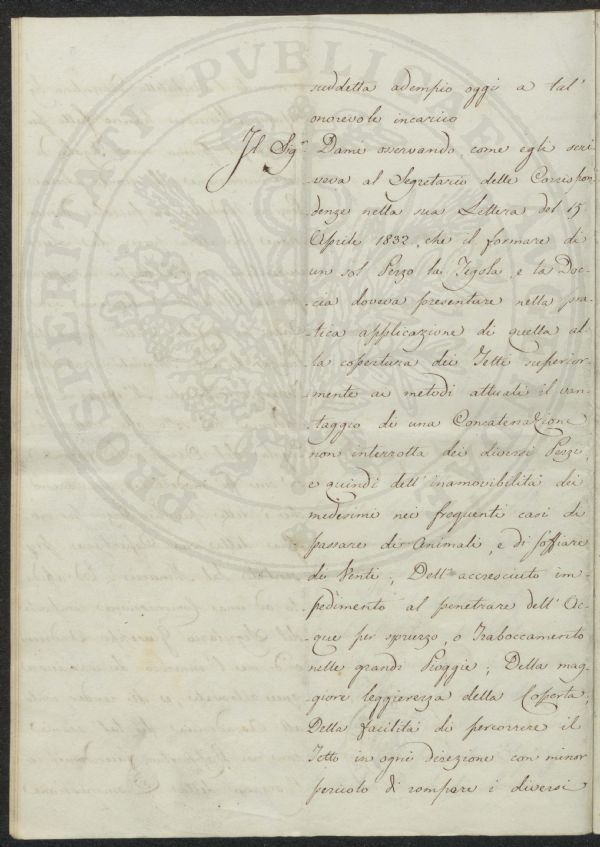 suddetta adempio oggi a tal'
onorevole incarico
Il Sigr. Dame osservando come egli scri-
-veva al Segretario delle Corrispon-
-denze nella sua Lettera del 15
Aprile 1832, che il formare di
un sol Pezzo la Tegola, e la Doc-
-cia doveva presentare nella pra-
-tica applicazione di quella al-
-la copertura dei Tetti superior-
-mente ai metodi attuali il van-
-taggio di una Concatenazione
non interrotta dei diversi Pezzi,
e quindi dell'inamovibilità dei
medesimi nei frequenti casi di
passare di Animali, e di soffiare
di Venti; Dell'accresciuto im-
-pedimento al penetrare dell'Ac-
-que per spruzzo, o Traboccamento
nelle grandi Pioggie; Della mag-
-giore leggierezza della Coperta;
Della facilità di percorrere il
Tetto in ogni direzione con minor
pericolo di rompere i diversi
PROSPERITATI PVBLICAE